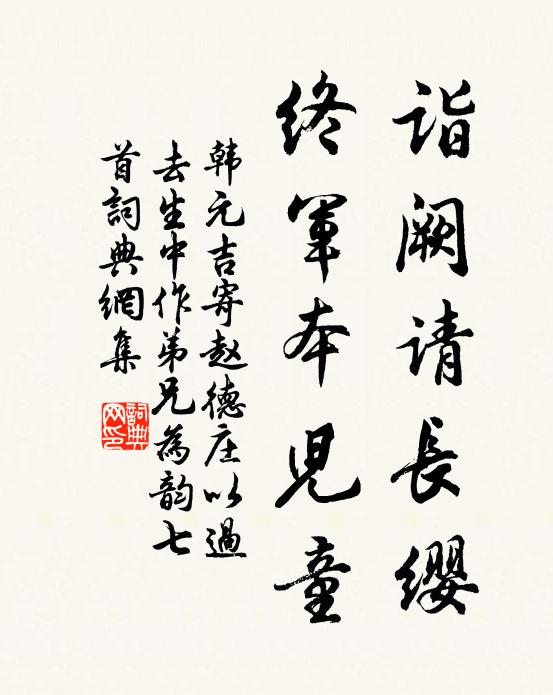 诣阙请長缨
终军本児童
韩元吉寄赵德庄以過
去生中作弟兄為韵七
首詞典網集
詞典
网印